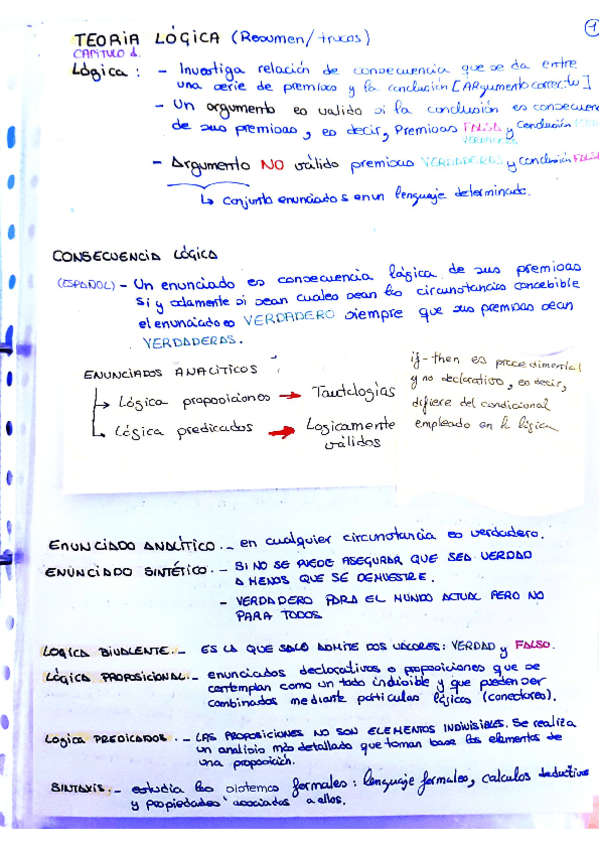 1
TEORIA LÓGICA (Resumen/trucos)
CAPITULO 1.
Lógica: - Investiga relación de consecuencia que se da entre
una serie de premisas y la conclusión [Argumento correcto]
- Un argumento es valido si la conclusión es consecuenc
de sus premisas, es decir, Premisas FALSA y Conclusión
- Argumento NO válido premisas VERDADERAS y conclusión FALSA
↳ conjunto enunciados en un lenguaje determinado.
CONSECUENCIA LÓGICA
(ESPAÑOL) - Un enunciado es consecuencia lógica de sus premisas
si y solamente si sean cuales sean las circunstancias concebible
el enunciado es VERDADERO siempre que sus premisas sean
VERDADERAS.
ENUNCIADOS ANALÍTICOS
↳ Lógica proposiciones → Tautologías
↳ Lógica predicados → Logicamente
válidos
if-then es procedimental
y no declarativo, es decir,
difiere del condicional
empleado en la lógica
ENUNCIADO ANALÍTICO.- en cualquier circunstancia es verdadero.
ENUNCIADO SINTÉTICO.- SI NO SE PUEDE ASEGURAR QUE SEA VERDAD
A MENOS QUE SE DEMUESTRE.
- VERDADERO PARA EL MUNDO ACTUAL PERO NO
PARA TODOS
LOGICA BIVALENTE.- ES LA QUE SOLO ADMITE DOS VALORES: VERDAD y FALSO.
LÓGICA PROPOSICIONAL.- enunciados declarativos o proposiciones que se
contemplan como un todo indivisible y que pueden ser
combinados mediante particulas lógicas (conectores).
Logica PREDICADOS.- LAS PROPOSICIONES NO SON ELEMENTOS INDIVISIBLES. Se realiza
un analisis más detallado que toman base los elementos de
una proposición.
SINTAXIS.- estudia los sistemas formales: lenguaje formales, calculos deductivos
y propiedades asociados a ellos.